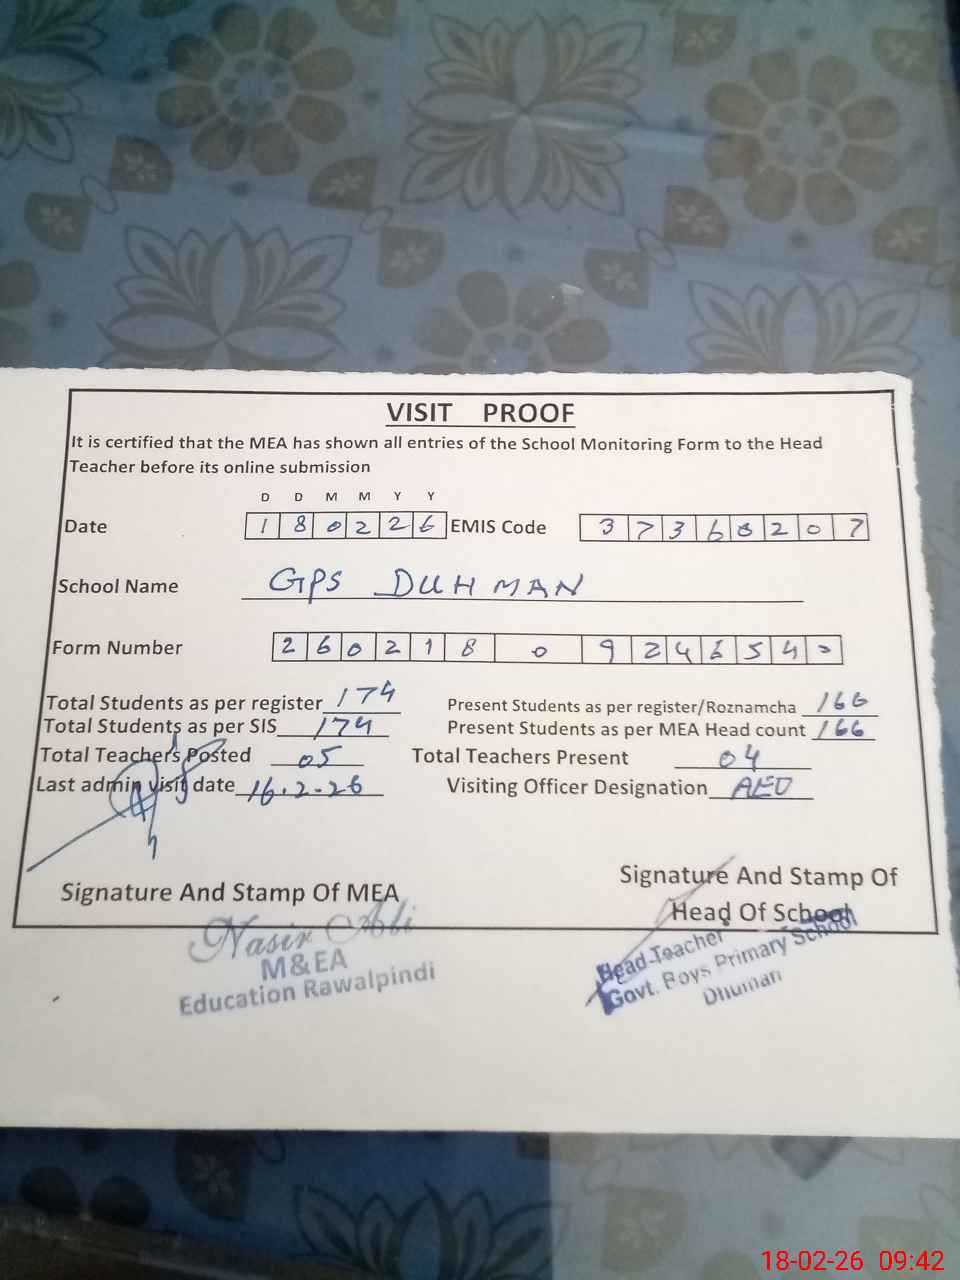 VISIT PROOF
It is certified that the MEA has shown all entries of the School Monitoring Form to the Head
Teacher before its online submission
D D M M Y Y
Date 1 8 0 2 2 6 EMIS Code 3 7 3 6 0 2 0 7
School Name GPS DUHMAN
Form Number 2 6 0 2 1 8 0 9 2 4 6 5 4
Total Students as per register 174 Present Students as per register/Roznamcha 166
Total Students as per SIS 174 Present Students as per MEA Head count 166
Total Teachers Posted 05 Total Teachers Present 04
Last admin visit date 16.2.26 Visiting Officer Designation AEO
Signature And Stamp Of MEA
Signature And Stamp Of
Head Of School
Nasir Ali
M&EA
Education Rawalpindi
Head Teacher
Govt. Boys Primary School
Dhuman
18-02-26 09:42